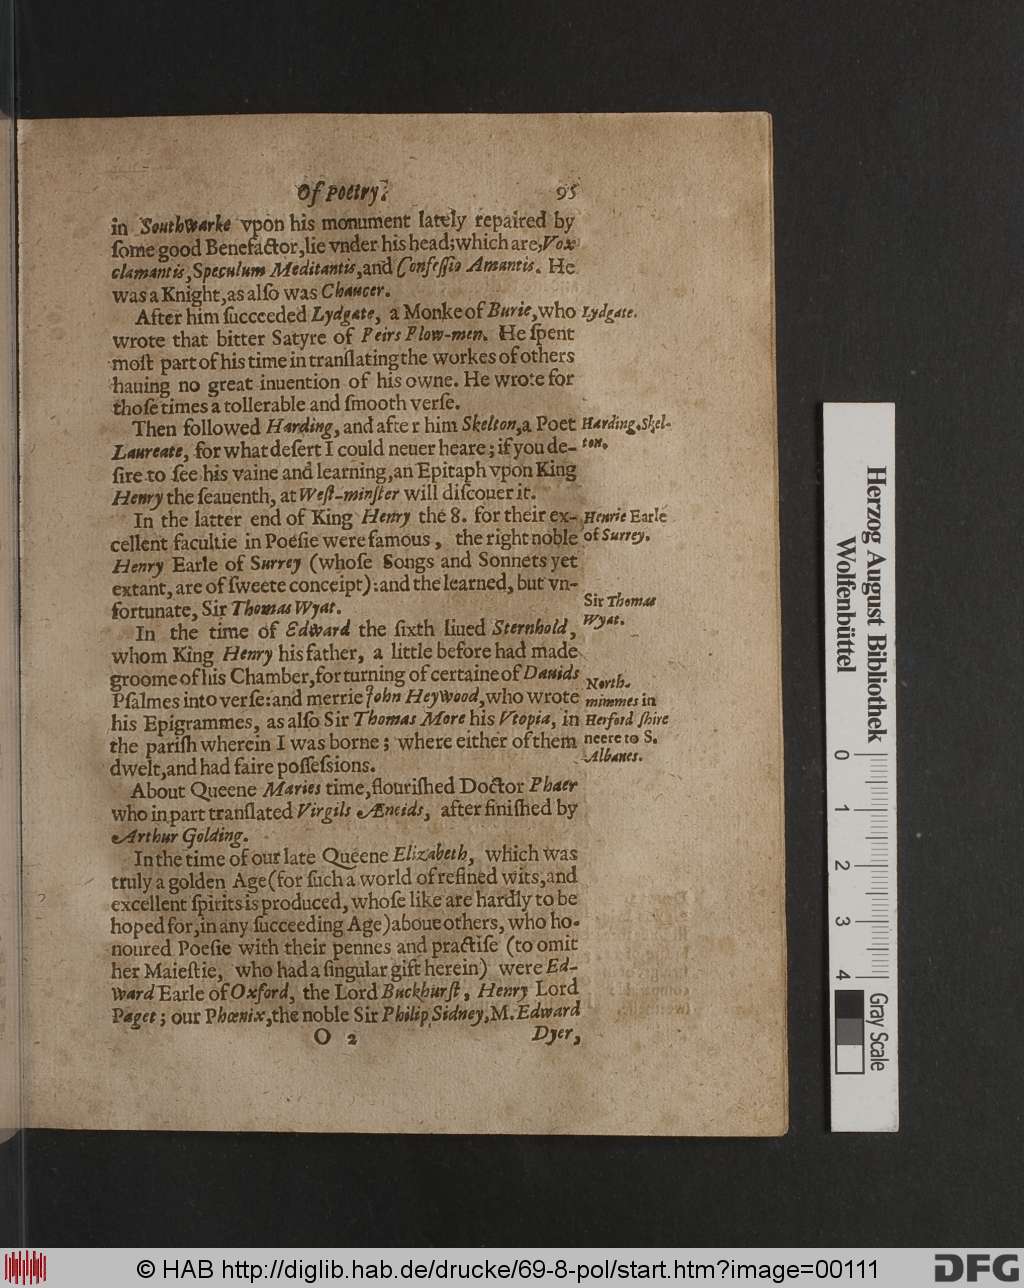 Of Poetry.
95
in Southwarke vpon his monument lately repaired by
ſome good Benefactor, lie vnder his head; which are, Vox
clamantis, Speculum Meditantis, and Confeſſio Amantis. He
was a Knight, as alſo was Chaucer.
After him ſucceeded Lydgate, a Monke of Burie, who
Lydgate.
wrote that bitter Satyre of Peirs Plow-men. He ſpent
moſt part of his time in tranſlating the workes of others
hauing no great inuention of his owne. He wrote for
thoſe times a tollerable and ſmooth verſe.
Then followed Harding, and after him Skelton, a Poet
Harding. Skel-
Laureate, for what deſert I could neuer heare; if you de-
ton.
ſire to ſee his vaine and learning, an Epitaph vpon King
Henry the ſeauenth, at Weſt-minſter will diſcouer it.
In the latter end of King Henry the 8. for their ex-
Henrie Earle
cellent facultie in Poëſie were famous, the right noble
of Surrey.
Henry Earle of Surrey (whoſe Songs and Sonnets yet
extant, are of ſweete conceipt): and the learned, but vn-
fortunate, Sir Thomas Wyat.
Sir Thomas
Wyat.
In the time of Edward the ſixth liued Sternhold,
whom King Henry his father, a little before had made
groome of his Chamber, for turning of certaine of Dauids
Pſalmes into verſe: and merrie John Heywood, who wrote
his Epigrammes, as alſo Sir Thomas More his Vtopia, in
the pariſh wherein I was borne; where either of them
dwelt, and had faire poſſeſsions.
North-
mimmes in
Herford ſhire
neere to S.
Albanes.
About Queene Maries time, flouriſhed Doctor Phaer
who in part tranſlated Virgils Æneids, after finiſhed by
Arthur Golding.
In the time of our late Queene Elizabeth, which was
truly a golden Age (for ſuch a world of refined wits, and
excellent ſpirits is produced, whoſe like are hardly to be
hoped for, in any ſucceeding Age) aboue others, who ho-
noured Poeſie with their pennes and practiſe (to omit
her Maieſtie, who had a ſingular gift herein) were Ed-
ward Earle of Oxford, the Lord Buckhurſt, Henry Lord
Paget; our Phœnix, the noble Sir Philip Sidney, M. Edward
O 2
Dyer,
Herzog August Bibliothek
Wolfenbüttel
0
1
2
3
4
Gray Scale
© HAB http://diglib.hab.de/drucke/69-8-pol/start.htm?image=00111
DFG